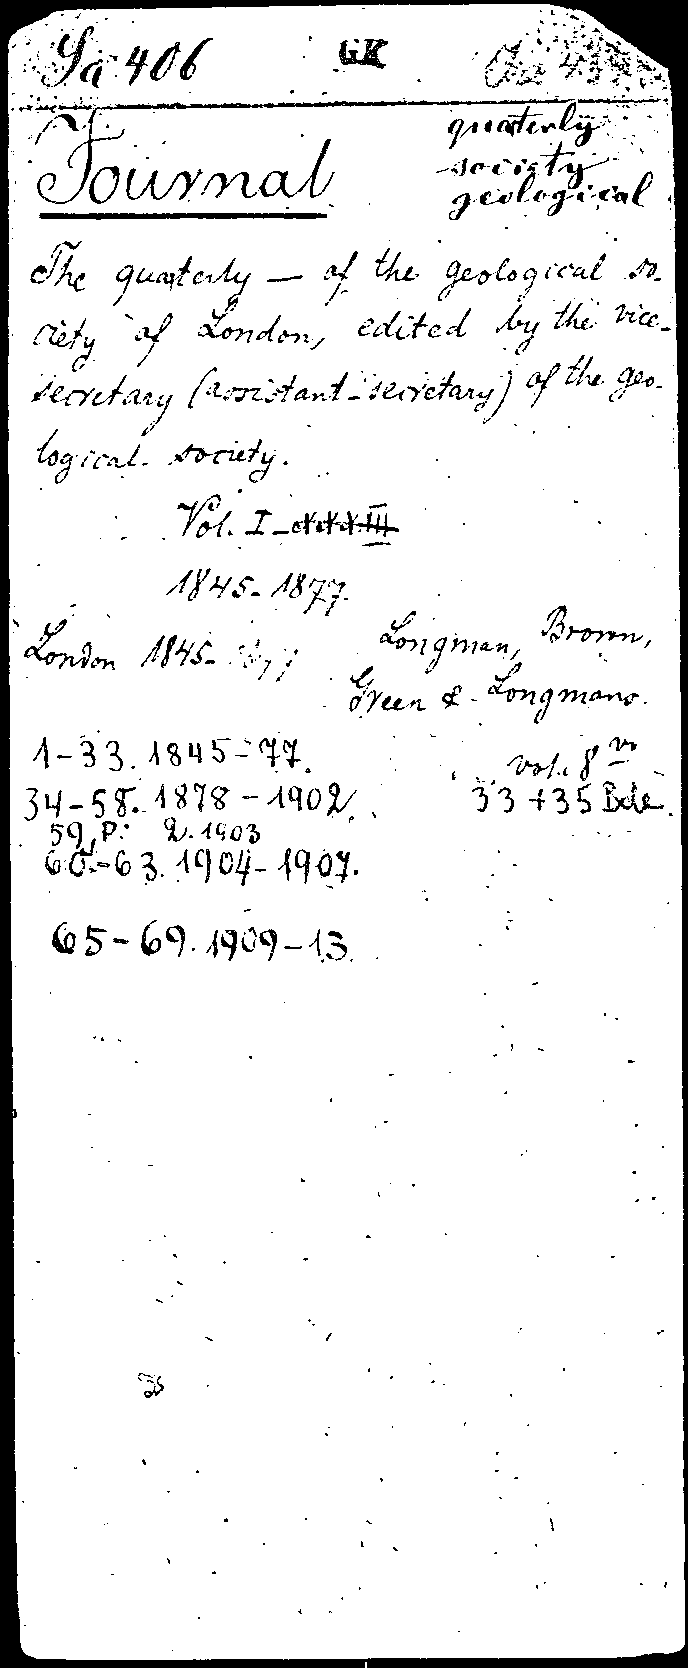 Sa 406 GK
Journal
quaterly
society
geological
The quaterly — of the geological so-
ciety of London, edited by the vice-
secretary (assistant-secretary) of the geo-
logical society.
Vol. I-XXXIII
1845-1877.
London 1845-1877 Longman, Brown,
Green & Longmans.
1-33. 1845-77. vol. 8vo
34-58. 1878-1902. 33+35 Bde.
59, P: 2. 1903
60.-63. 1904-1907.
65-69. 1909-13.